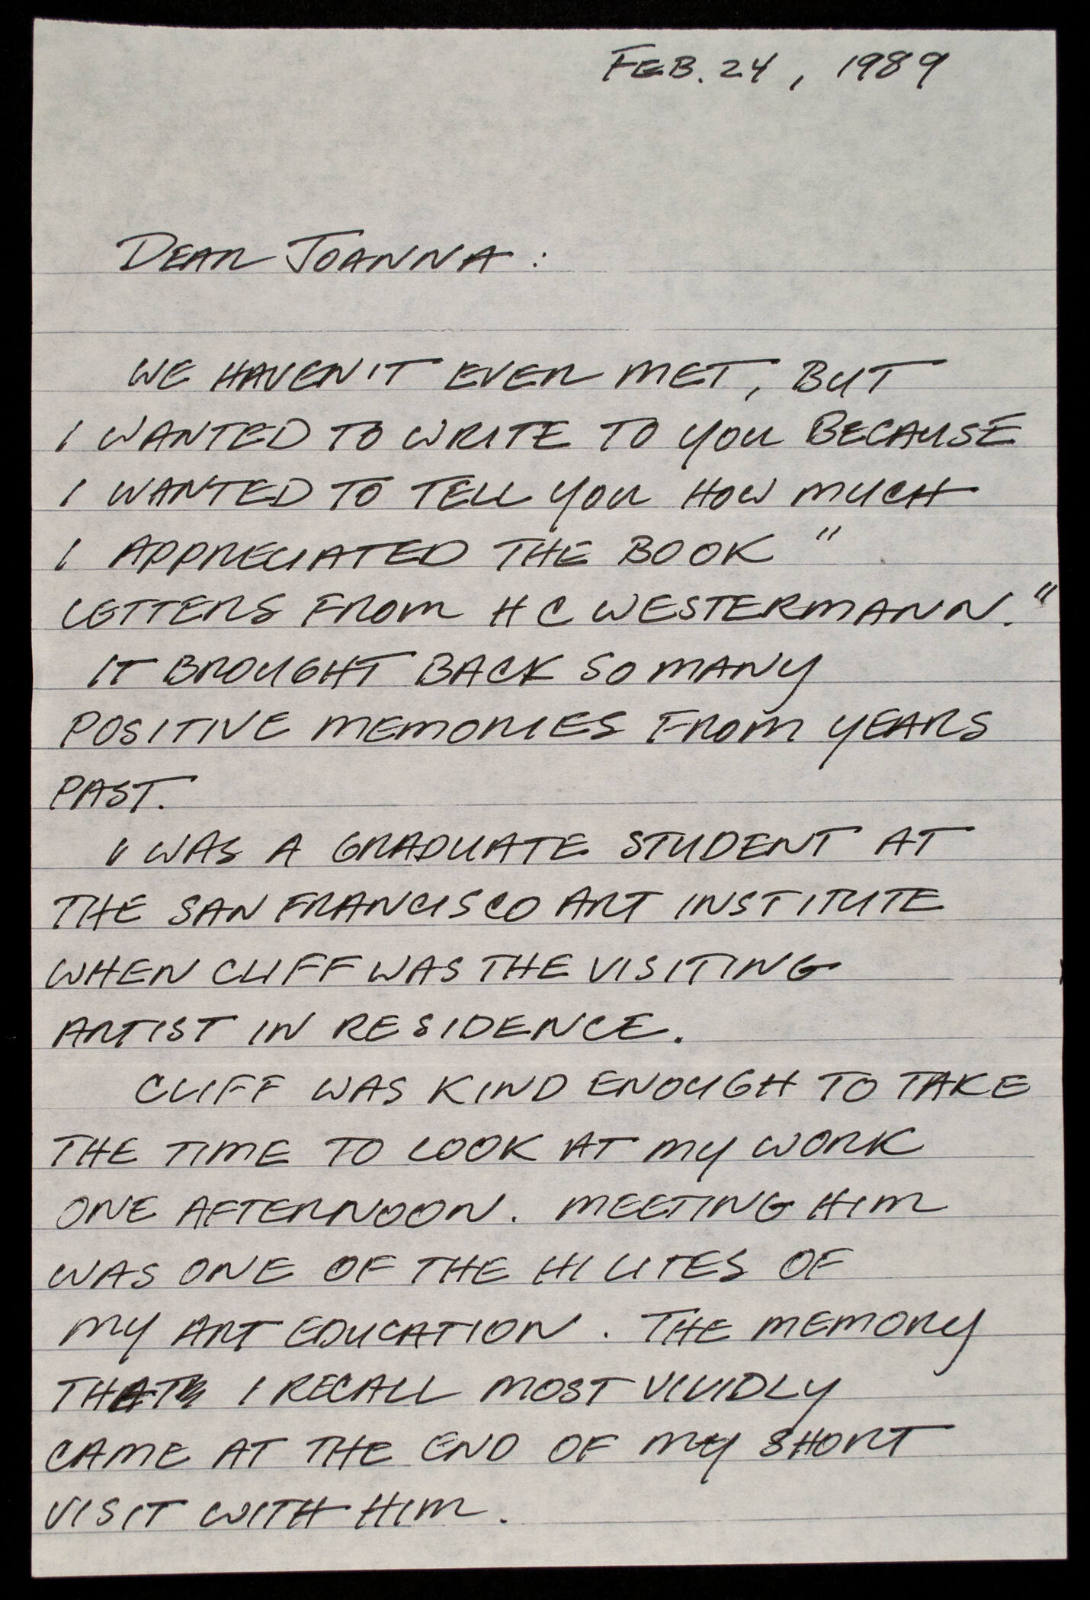 FEB. 24, 1989
DEAR JOANNA:
WE HAVEN'T EVER MET, BUT
I WANTED TO WRITE TO YOU BECAUSE
I WANTED TO TELL YOU HOW MUCH
I APPRECIATED THE BOOK "
LETTERS FROM H C WESTERMANN."
IT BROUGHT BACK SO MANY
POSITIVE MEMORIES FROM YEARS
PAST.
I WAS A GRADUATE STUDENT AT
THE SAN FRANCISCO ART INSTITUTE
WHEN CLIFF WAS THE VISITING
ARTIST IN RESIDENCE.
CLIFF WAS KIND ENOUGH TO TAKE
THE TIME TO LOOK AT MY WORK
ONE AFTERNOON. MEETING HIM
WAS ONE OF THE HI LITES OF
MY ART EDUCATION. THE MEMORY
THAT I RECALL MOST VIVIDLY
CAME AT THE END OF MY SHORT
VISIT WITH HIM.